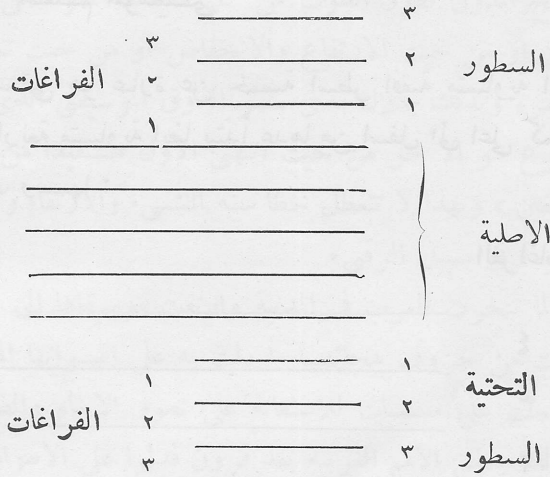 ٣
السطور ٢ ٣
١ ٢ الفراغات
١
الاصلية
١
التحتية ١
٢ ٢ الفراغات
السطور ٣ ٣